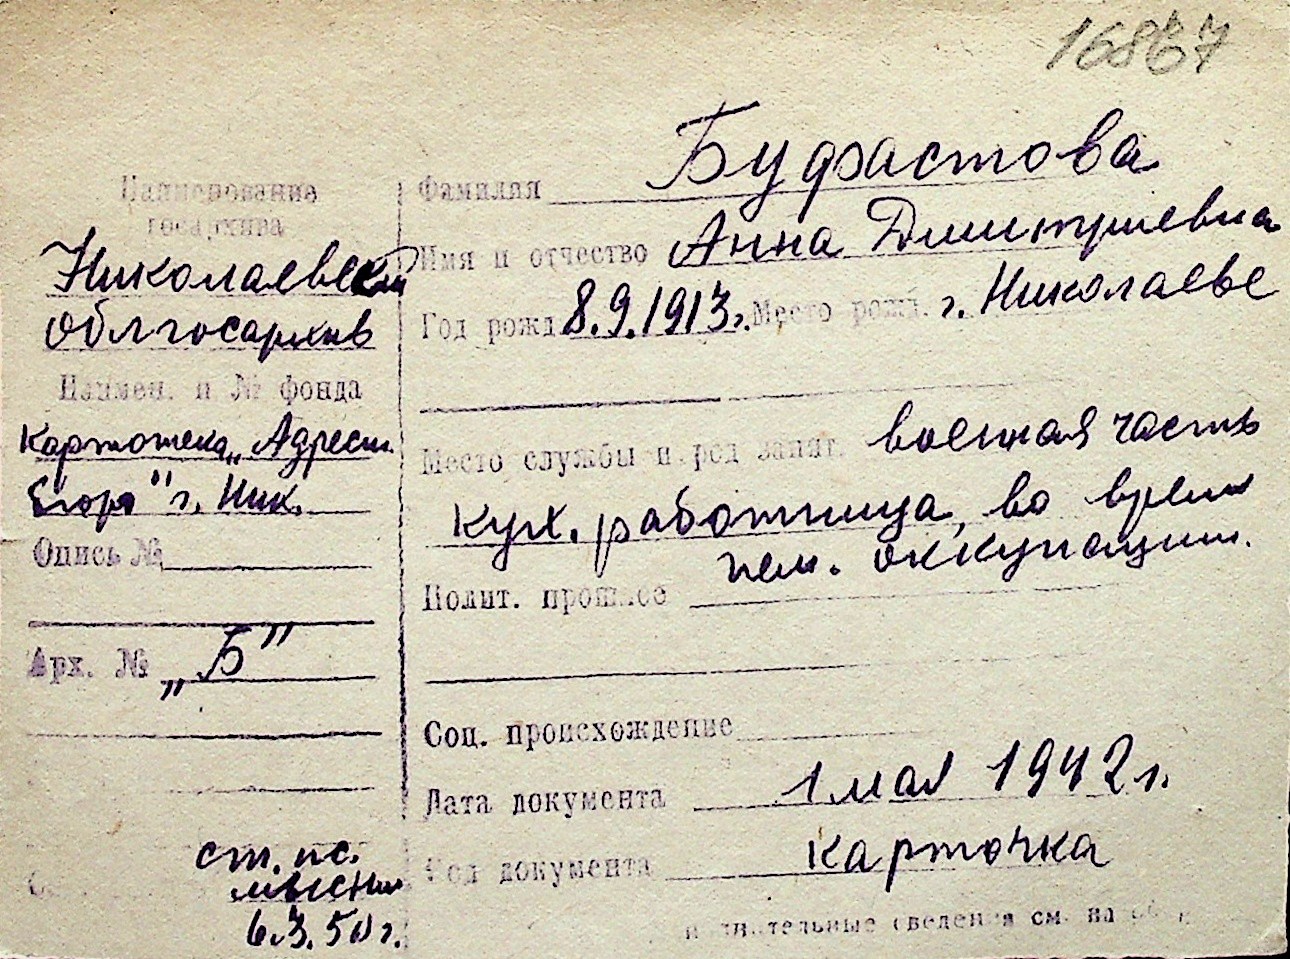 16867
Наименование
госархива
Николаевский
облгосархив
Наимен. и № фонда
Картотека „Адресн.
бюро" г. Ник.
Опись №
Арх. № „Б"
ст. нс.
6.3.50 г.
Фамилия Буфастова
Имя и отчество Анна Дмитриевна
Год рожд. 8.9.1913г. Место рожд. г. Николаеве
Место службы и род занят. военная часть
кух. работница, во время
нем. оккупации.
Полит. прошлое
Соц. происхождение
Дата документа 1 мая 1942 г.
Род документа карточка
сведения см. на об